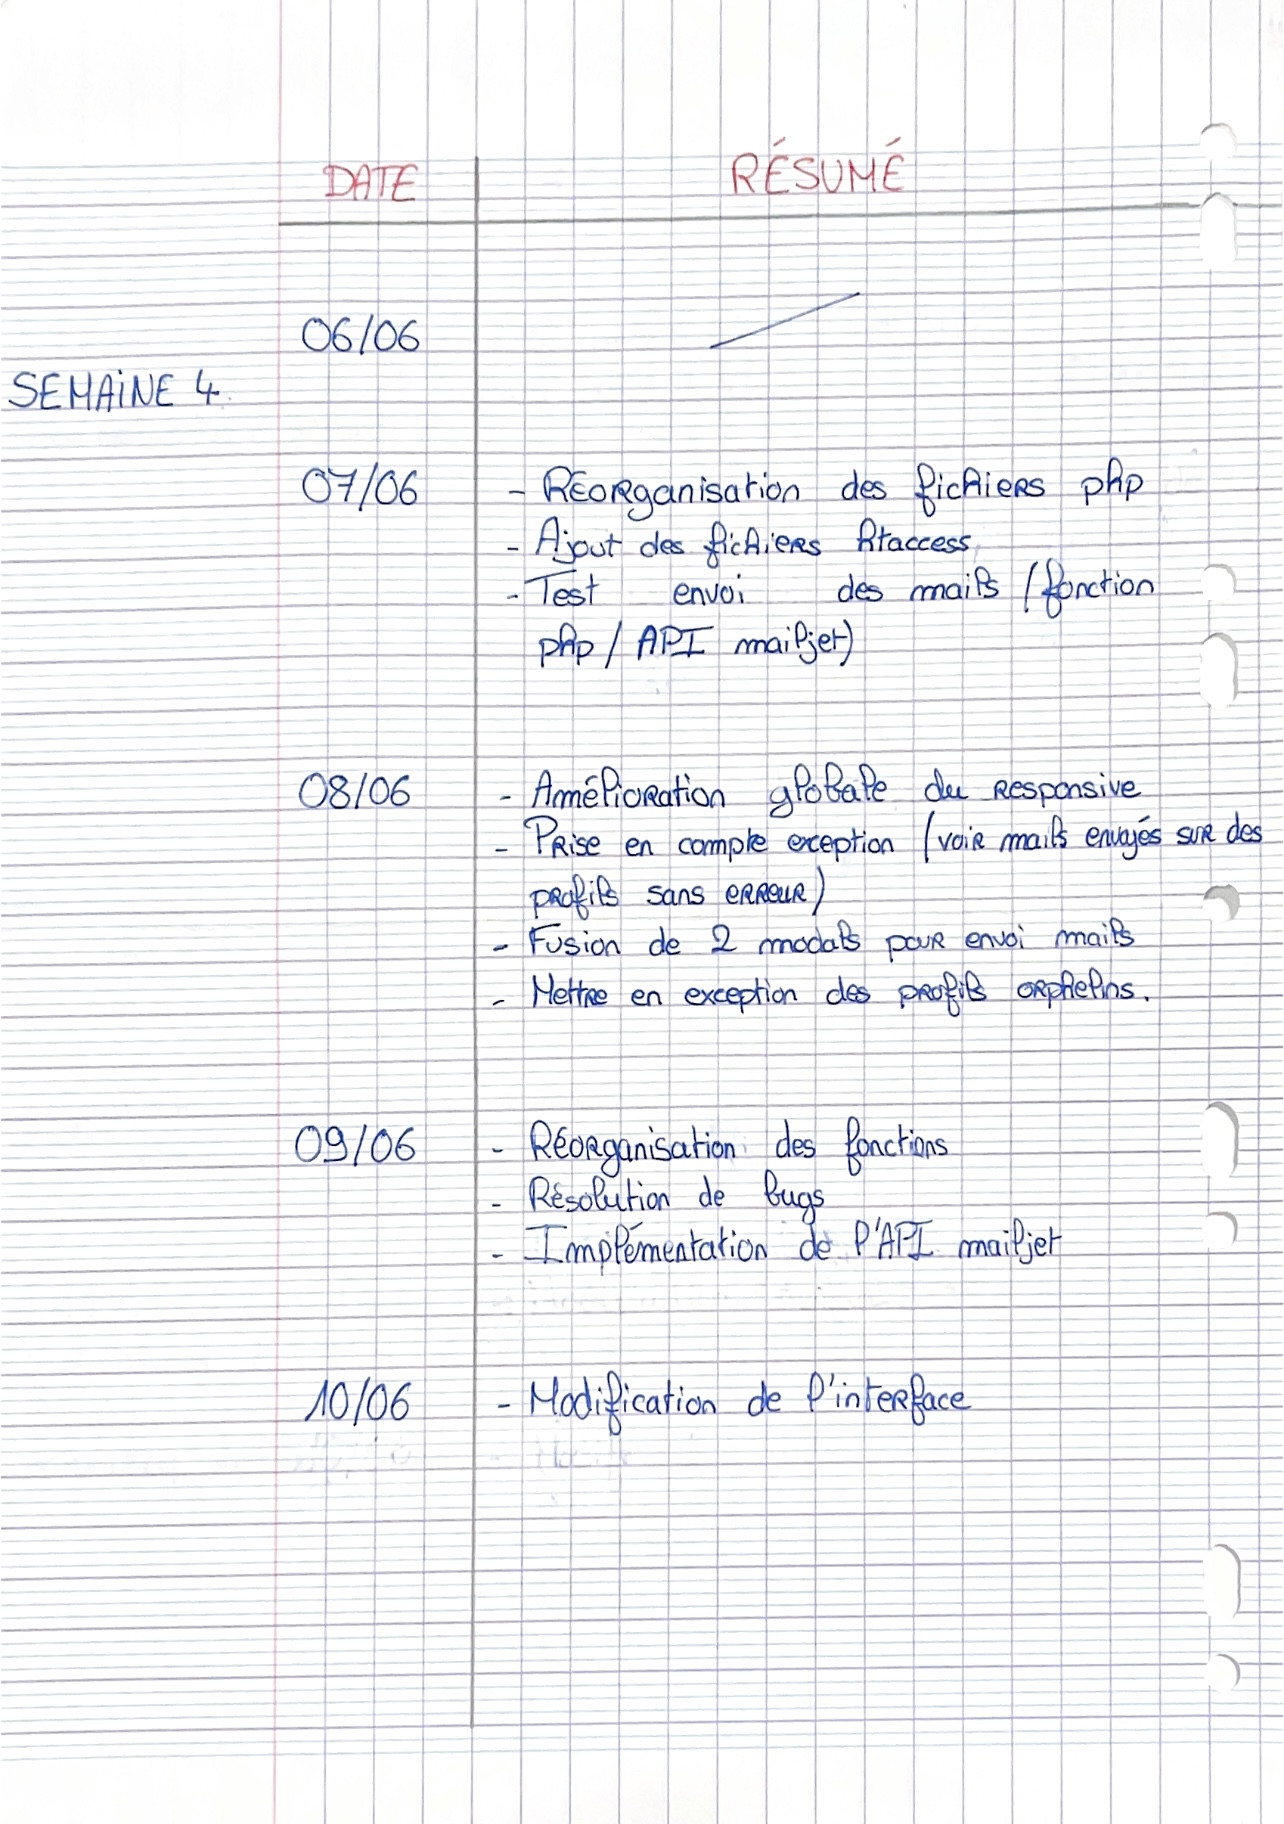 DATE RÉSUMÉ
06/06
SEMAINE 4
07/06 - Réorganisation des fichiers php
- Ajout des fichiers htaccess
- Test envoi des mails (fonction
php / API mailjet)
08/06 - Amélioration globale du responsive
- Prise en compte exception (voir mails envoyés sur des
profils sans erreur)
- Fusion de 2 modals pour envoi mails
- Mettre en exception des profils orphelins.
09/06 - Réorganisation des fonctions
- Résolution de bugs
- Implémentation de l'API mailjet
10/06 - Modification de l'interface